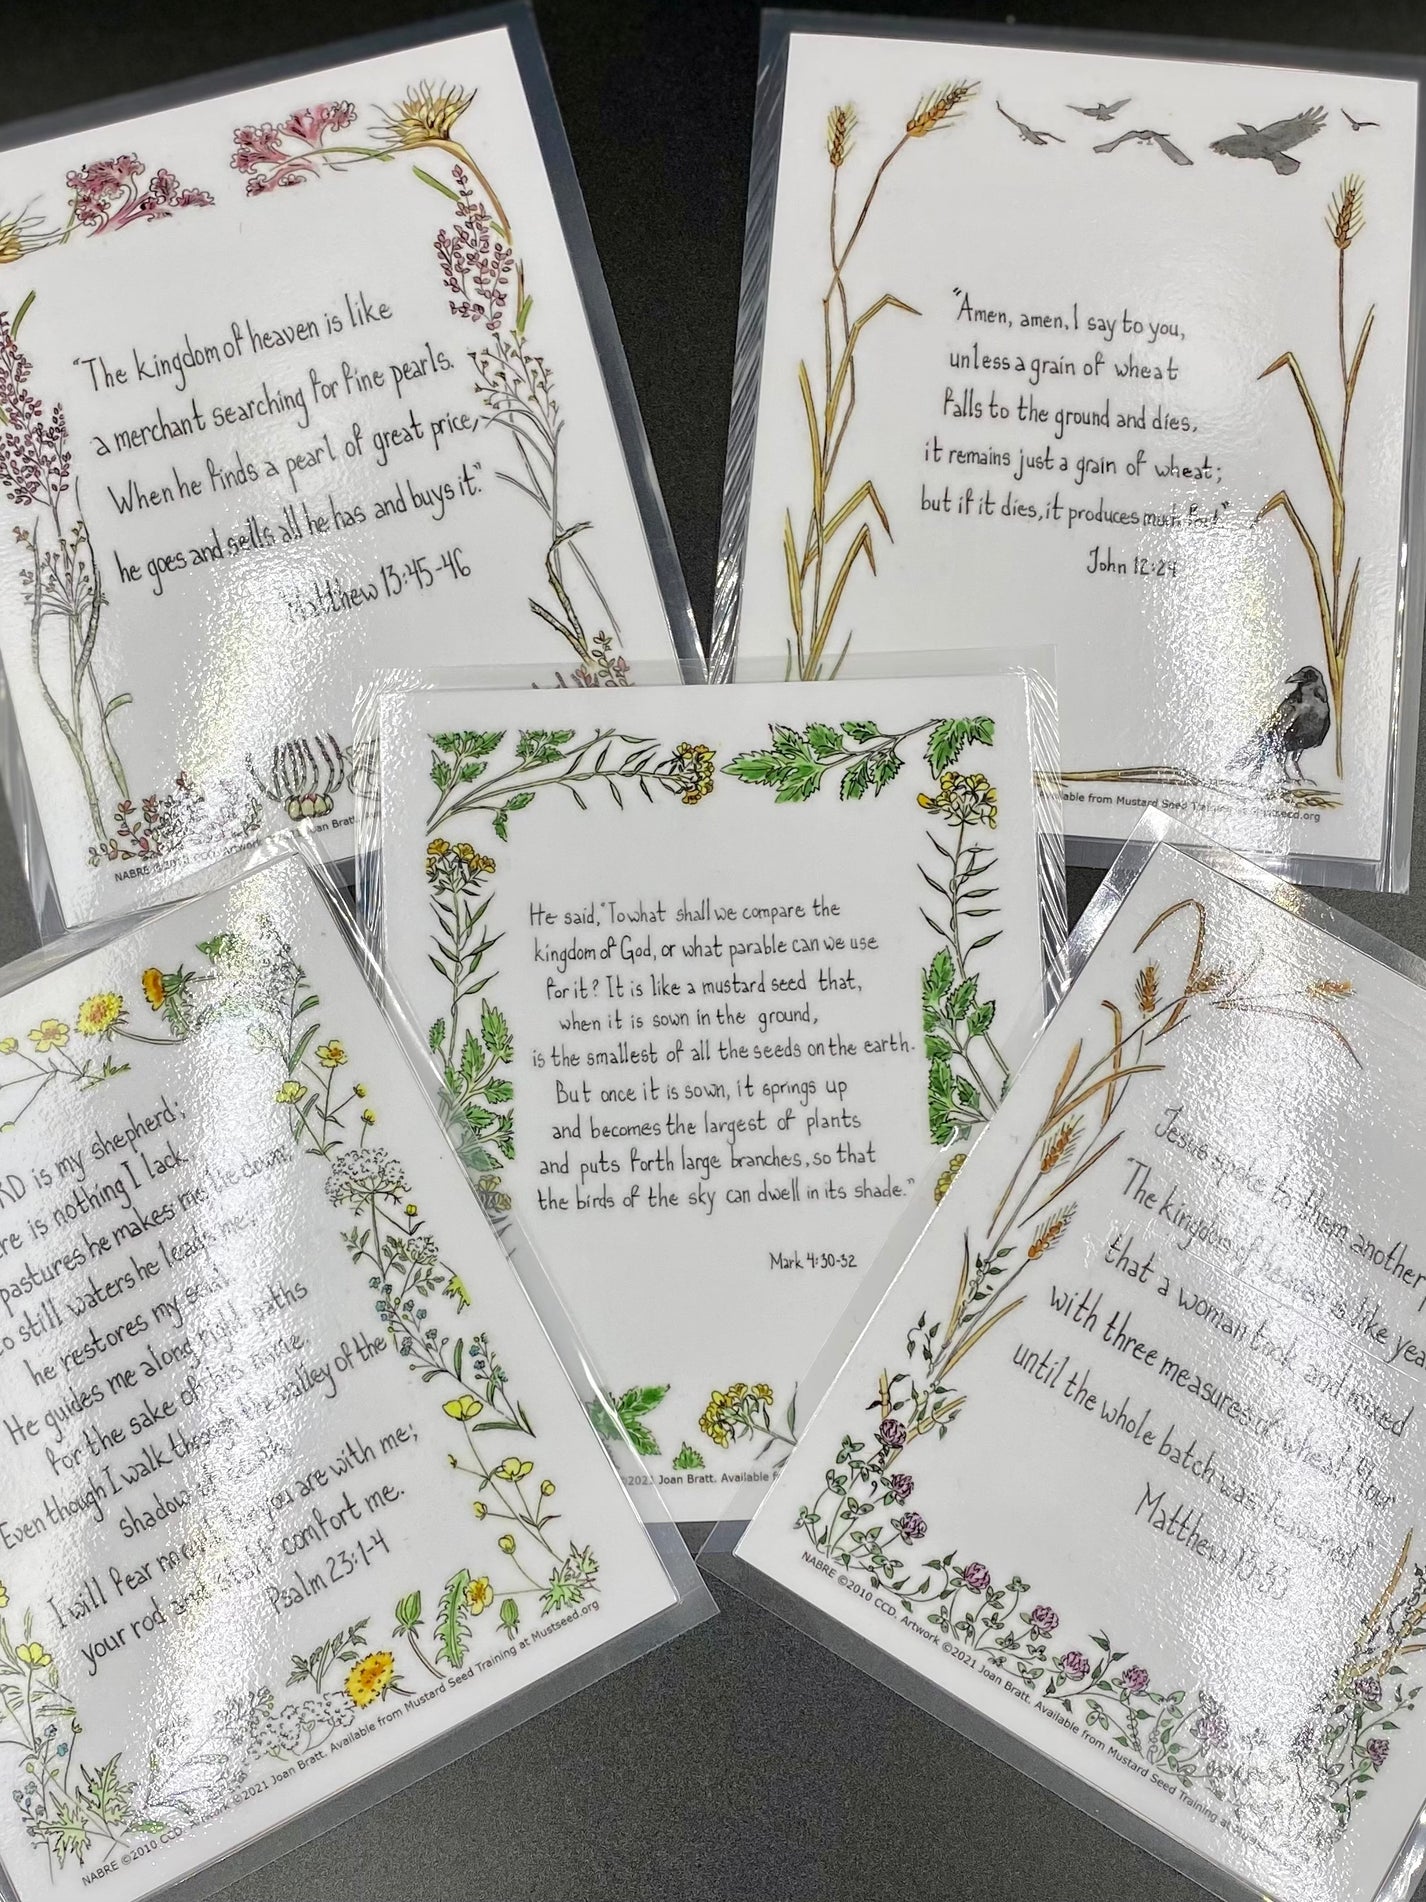 "The kingdom of heaven is like
a merchant searching for fine pearls.
When he finds a pearl of great price,
he goes and sells all he has and buys it."
Matthew 13:45-46
NABRE ©2010 CCD. Artwork
Joan Bratt
"Amen, amen, I say to you,
unless a grain of wheat
falls to the ground and dies,
it remains just a grain of wheat;
but if it dies, it produces much fruit."
John 12:24
lable from Mustard Seed Training
seed.org
He said, "To what shall we compare the
kingdom of God, or what parable can we use
for it? It is like a mustard seed that,
when it is sown in the ground,
is the smallest of all the seeds on the earth.
But once it is sown, it springs up
and becomes the largest of plants
and puts forth large branches, so that
the birds of the sky can dwell in its shade."
Mark 4:30-32
©2021 Joan Bratt. Available f
RD is my shepherd;
re is nothing I lack.
pastures he makes me lie down;
o still waters he leads me;
he restores my soul.
He guides me along right paths
for the sake of his name.
Even though I walk through the valley of the
shadow of
I will fear no evil, for you are with me;
your rod and staff comfort me.
Psalm 23:1-4
NABRE ©2010 CCD. Artwork ©2021 Joan Bratt. Available from Mustard Seed Training at Mustseed.org
Jesus spoke to them another
"The kingdom of heaven is like yea
that a woman took and mixed
with three measures of wheat flour
until the whole batch was leavened."
Matthew 13:33
NABRE ©2010 CCD. Artwork ©2021 Joan Bratt. Available from Mustard Seed Training at Must